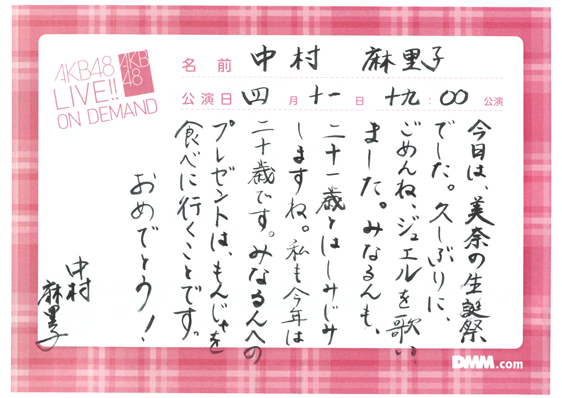 AKB48
LIVE!!
ON DEMAND
AKB
48
名前 中村 麻里子
公演日 四 月 十一 日 十九:00 公演
今日は、美奈の生誕祭
でした。久しぶりに、
ごめんね、ジュエルを歌い
ました。みなるんも、
二十一歳とはしみじみ
しますね。私も今年は
二十歳です。みなるんへの
プレゼントは、もんじゃを
食べに行くことです。
おめでとう!
中村
麻里子
DMM.com